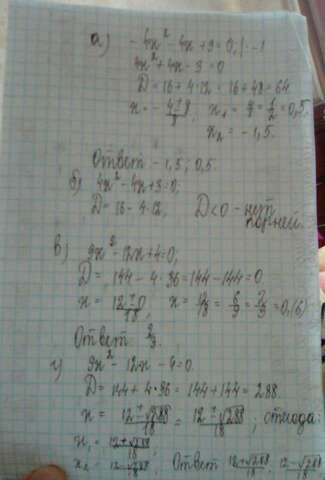 а) -4x² - 4x + 3 = 0, | · -1
4x² + 4x - 3 = 0
D = 16 + 4·12 = 16 + 48 = 64
x₂ = -1,5.
Ответ -1,5; 0,5.
б) 4x² - 4x + 3 = 0;
D = 16 - 4·12, D < 0 - нет
корней.
в) 9x² - 12x + 4 = 0;
D = 144 - 4·36 = 144 - 144 = 0
Ответ: 2/3.
г) 9x² - 12x - 4 = 0.
D = 144 + 4·36 = 144 + 144 = 288
x = (12 ± √288)/18 = (12 ± √288)/18; отсюда:
x₁ = (12+√288)/18;
x₂ = (12-√288)/18; Ответ (12+√288)/18; (12-√288)/18